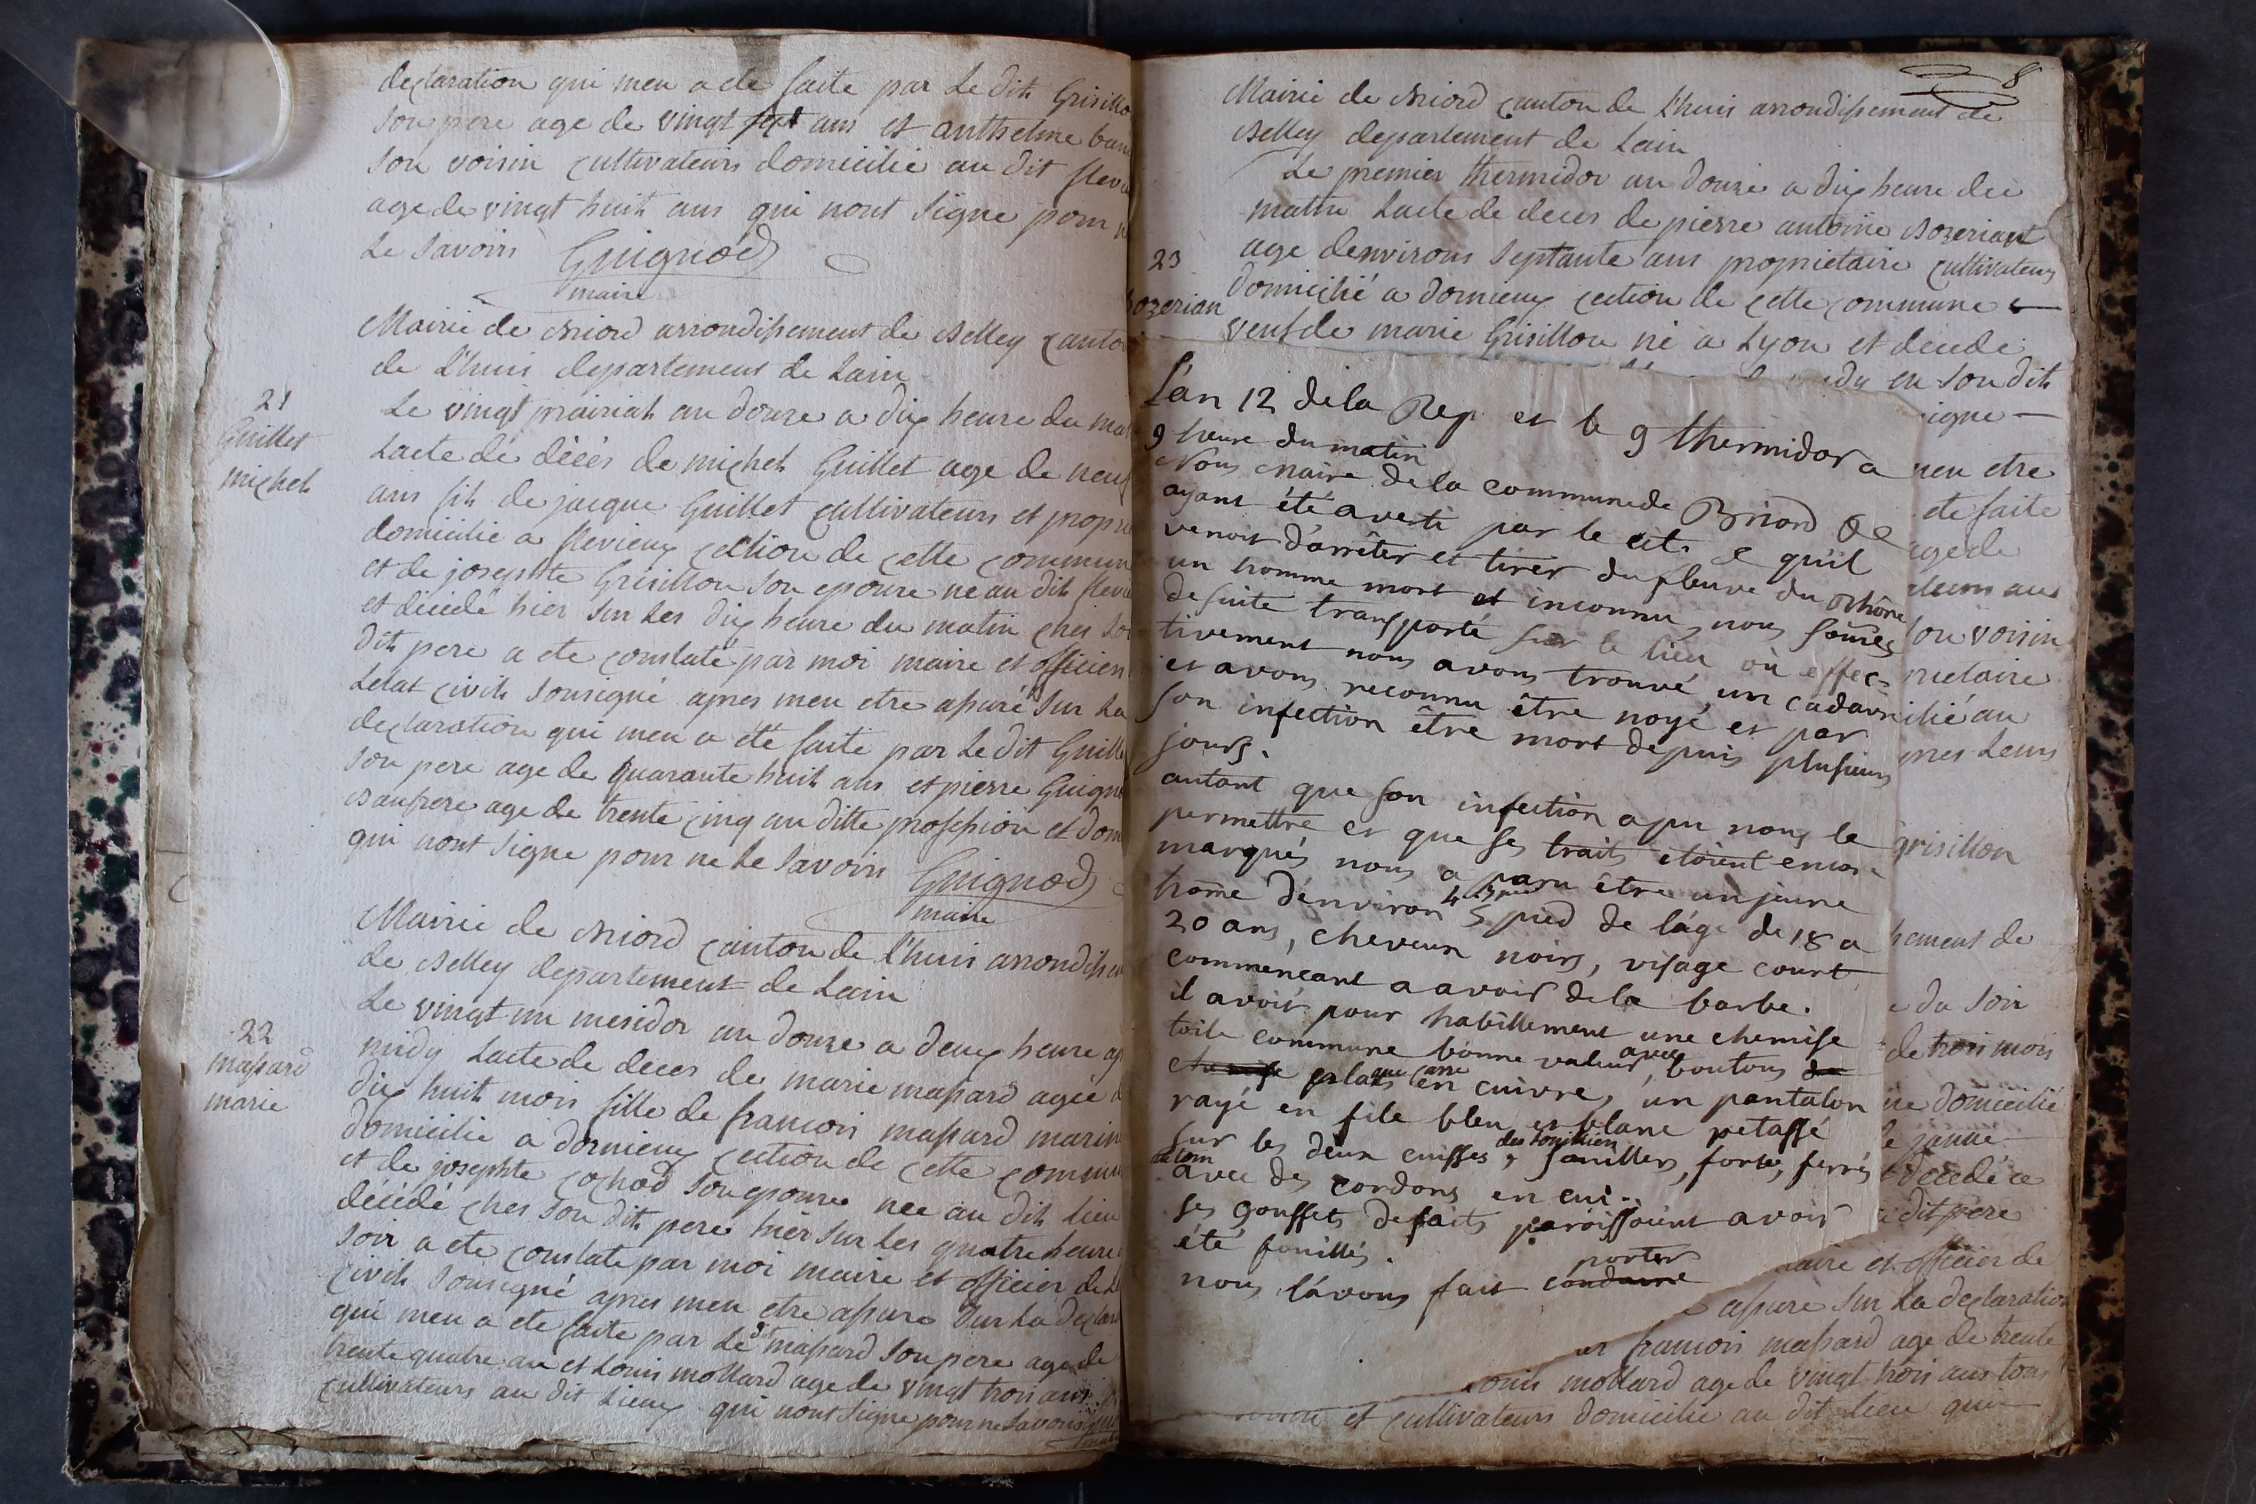 declaration qui meu a ete faite par Le dit Grisillo
Son pere age de vingt sept ans et anthelme
Son voisin cultivateurs domicilie au dit flevi
age de vingt huit ans qui nont Signe pour n
Le Savoirs Guignod
maire
Mairie de Briord arrondissement de Belley canto
de L'huis departement de Lain
21
Guillet
michel
Le vingt prairial an douze a dix heure du ma
Lacte de décès de michel Guillet age de neuf
ans fils de jacque Guillet cultivateurs et propri
domicilie a flevieux cection de cette commun
et de josephte Grisillon Son epouze ne au dit flevi
et décédé hier Sur Les dix heure du matin ches So
dit pere a ete constaté par moi maire et officien
Letat civils Sousigné apres meu etre assuré Sur La
declaration qui meu a été faite par Le dit Guille
Son pere age de quarante huit ans et pierre Guign
Baufrere age de trente cinq an ditte profession et dom
qui nont Signe pour ne Le Savoirs Guignod
maire
Mairie de Briord canton de L'huis arrondisse
de Belley departement de Lain
22
massard
marie
Le vingt un mesidor an douze a deux heure ap
midy Lacte de deces de marie massard agée d
dix huit mois fille de francois massard marin
domicilie a dornieux cection de cette commun
et de josephte cochod Son epouze nee au dit lieu
décédé ches Son dit pere hier Sur Les quatre heure
Soir a ete constate par moi maire et officier de L
civils Sousigné apres meu etre assure Sur La declara
qui meu a ete faite par Le dt massard Son pere age de
trente quatre an et Louis mollard age de vingt trois ans
cultivateurs au dit Lieux qui nont Signe pour ne Savoirs
8
Mairie de Briord canton de L'huis arrondissement de
Belley departement de Lain
Le premier thermidor an douze a dix heure de
matin Lacte de deces de pierre antoine Bozeriant
23
bozerian
age denvirons Septante ans proprietaire cultivateurs
Domicilié a dornieux cection de cette commune
veuf de marie Grisillon né a Lyon et décédé
en Son dit
igne
L'an 12 de la Rep et le 9 thermidor a
9 heure du matin
Nous Maire de la commune de Briord
ayant été averti par le cit. qu'il
venoit d'arrêter et tirer du fleuve du Rhône
un homme mort et inconnu, nous some͠s
de suite transporté sur le lieu où effec-
tivement nous avons trouvé un cadavre
et avons reconnu être noyé et par
son infection être mort depuis plusieurs
jours.
autant que son infection a pu nous le
permettre et que ses traits étoient encore
marqués nous a paru être un jeune
home d'environ 5 pied de l'âge de 18 a
20 ans, cheveux noirs, visage court,
commençant a avoir de la barbe.
il avoit pour habillement une chemise
toile commune bonne valeur avec boutons de
chemise plats en cuivre, un pantalon
rayé en file bleu et blanc petassé
sur les deux cuisses, des souilliers souilliers, forts, ferrés
avec des cordons en cui..
ses goussets defaits paroissoient avoir
été fouillés.
nous l'avons fait conduire porter
meu etre
ete faite
age de
ateurs au
Son voisin
prietaire
icilié au
pres Leurs
grisillon
sement de
e du Soir
de trois mois
ire domicilié
e janne
décédé ce
e dit pere
aire et officier de
assure Sur La declaration
francois massard age de trente
ouis mollard age de vingt trois ans tous
et cultivateurs domicilie au dit Lieu qui